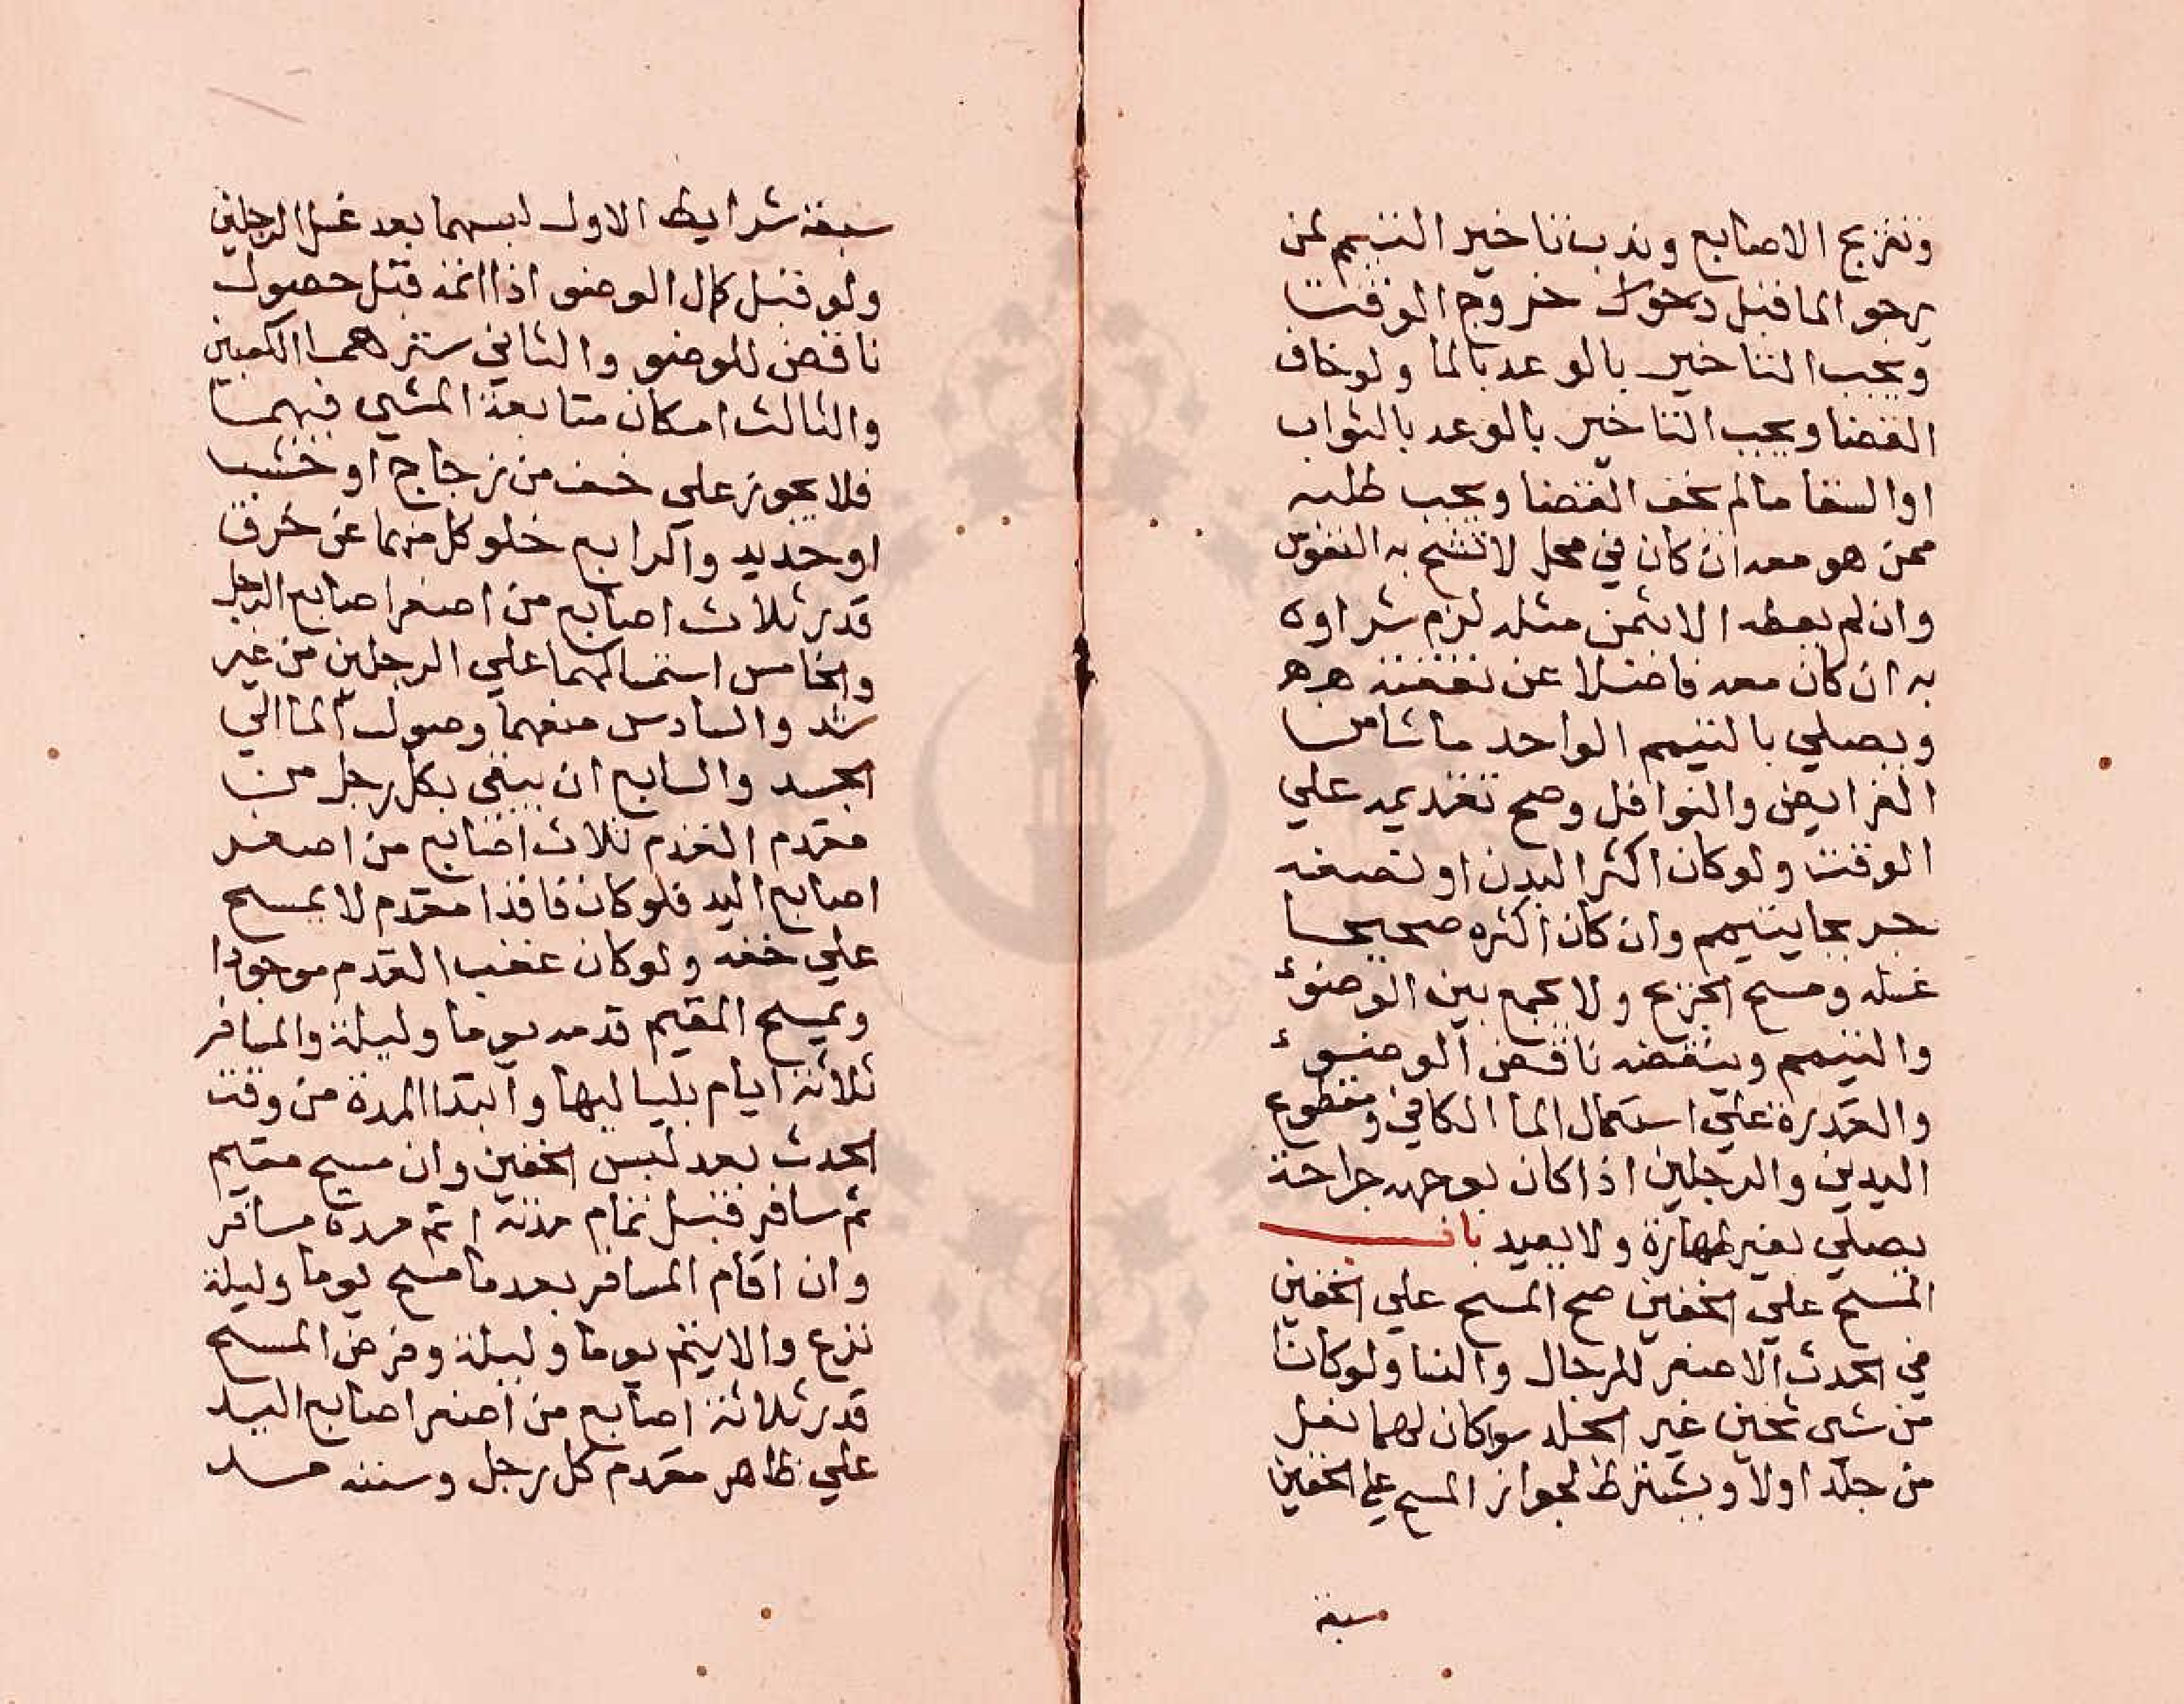 وتفريج الاصابع وندب تاخير التيمم لمن
يرجو الما قبل دخول خروج الوقت
ويجب التاخير بالوعد بالما ولو خاف
القضا ويجب التاخير بالوعد بالثواب
او السقا ما لم يخف القضا ويجب طلبه
ممن هو معه ان كان في محل لا تشح به النفوس
وان لم يعطه الا بثمن مثله لزم شراوه
به ان كان معه فاضلا عن نفقته
ويصلي بالتيمم الواحد ما شا من
الفرايض والنوافل وصح تقديمه علي
الوقت ولو كان اكثر البدن او نصفه
جريحا يتيمم وان كان اكثره صحيحا
غسله ومسح الجريح ولا يجمع بين الوضوء
والتيمم وينقضه ناقض الوضوء
والقدرة علي استعمال الما الكافي ومقطوع
اليدين والرجلين اذا كان بوجهه جراحة
يصلي بغير طهارة ولا يعيد باب
المسح علي الخفين صح المسح علي الخفين
في الحدث الاصغر للرجال والنسا ولو كانا
من شي ثخين غير الجلد سوا كان لهما نعل
من جلد اولا ويشترط لجواز المسح علي الخفين
سبعة
سبعة شرايط الاول لبسهما بعد غسل الرجلين
ولو قبل كمال الوضو اذا اتمه قبل حصول
ناقض للوضو والثاني سترهما الكعبين
والثالث امكان متابعة المشي فيهما
فلا يجوز علي خف من زجاج او خشب
او حديد والرابع خلو كل منهما عن خرق
قدر ثلاث اصابع من اصغر اصابع الرجل
والخامس استمساكهما علي الرجلين من غير
شد والسادس منعهما وصول الما الي
الجسد والسابع ان يبقي بكل رجل من
مقدم القدم ثلاث اصابع من اصغر
اصابع اليد فلو كان فاقدا مقدم لا يمسح
علي خفه ولو كان عقب القدم موجودا
ويمسح المقيم قدمه يوما وليلة والمسافر
ثلاثة ايام بلياليها وابتدا المدة من وقت
الحدث بعد لبس الخفين وان مسح مقيم
ثم سافر قبل تمام مدته اتم مدة مسافر
وان اقام المسافر بعد ما مسح يوما وليلة
نزع والا يتم يوما وليلة وفرض المسح
قدر ثلاثة اصابع من اصغر اصابع اليد
علي ظاهر مقدم كل رجل وسننه مد